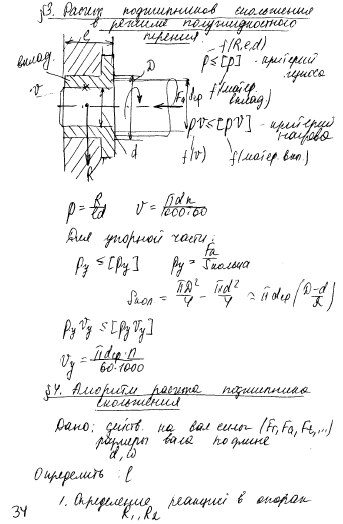 §3. Расчет подшипников скольжения
в режиме полужидкостного
трения
l
вклад.
f(R,e,d)
p≤[p] - критерий
износа
D
v
Fa
dср
f(матер.
вклад)
pv≤[pv] - критерий
нагрева
d
R
f(v)
f(матер. вкл.)
p = R/ld v = πdn/1000·60
Для упорной части:
pу ≤ [pу] pу = Fa/Sкольца
Sкол = πD²/4 - πd²/4 ≃ πdср(D-d/2)
pуVу ≤ [pуVу]
Vу = πdср·n/60·1000
§4. Алгоритм расчета подшипника
скольжения
Дано: действ. на вал силы (Fr, Fa, Ft,...)
размеры вала по длине
d, ω
Определить: l
1. Определение реакций в опорах
R1, R2
34